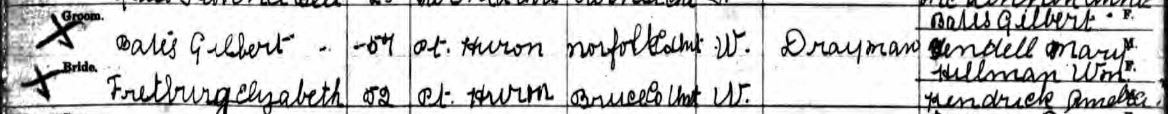 Groom. Bates Gilbert - 57 Pt. Huron Norfolk Co Ont W. Drayman Bates Gilbert F.
Kendell Mary M.
Bride. Fretburg Elyzabeth 52 Pt. Huron Bruce Co Ont W. Hillman Wm F.
Kendrick Amelia